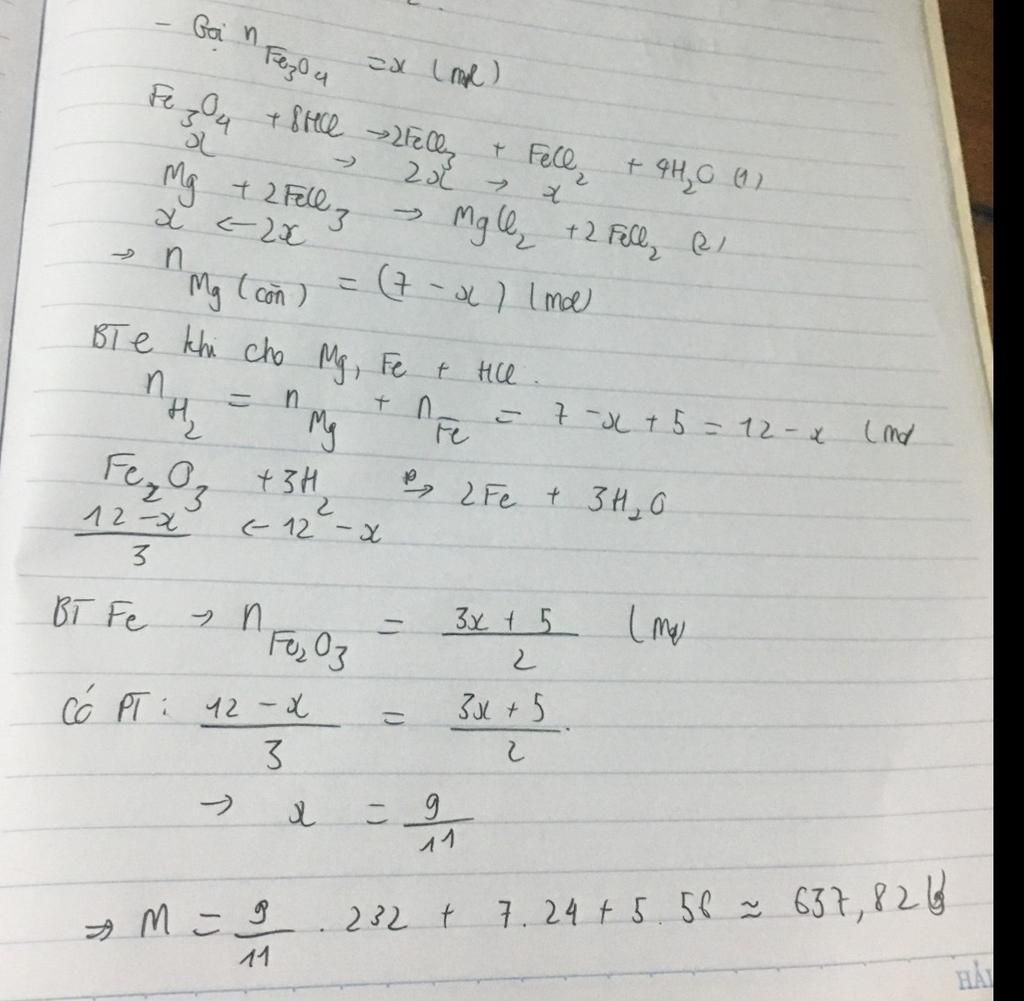 - Gọi n Fe3O4 = x (mol)
Fe3O4 + 8HCl → 2FeCl3 + FeCl2 + 4H2O (1)
x → 2x → x
Mg + 2FeCl3 → MgCl2 + 2FeCl2 (2)
x ← 2x
→ n Mg (còn) = (7 - x) (mol)
BT e khi cho Mg, Fe + HCl.
n H2 = n Mg + n Fe = 7 - x + 5 = 12 - x (mol
Fe2O3 + 3H2 → 2Fe + 3H2O
12 - x / 3 ← 12 - x
BT Fe → n Fe2O3 = 3x + 5 / 2 (mol
Có PT : 12 - x / 3 = 3x + 5 / 2 .
→ x = 9 / 11
⇒ m = 9 / 11 . 232 + 7 . 24 + 5 . 56 ≈ 637,82 g
HẢI